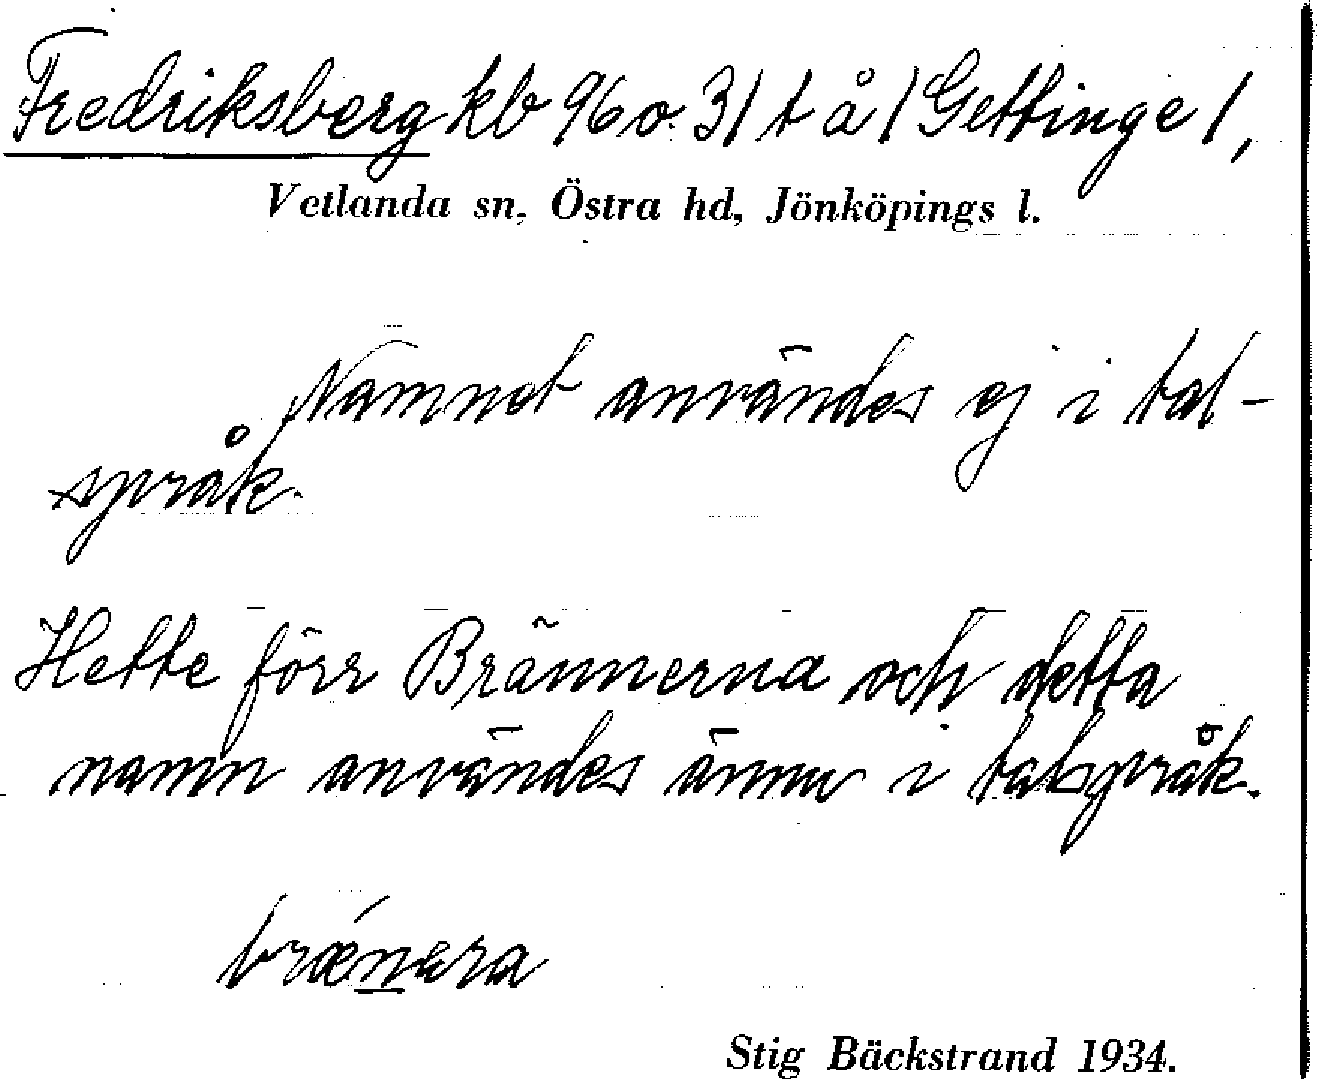 Fredriksberg kb 96 o. 31 t å / Gettinge /,
Vetlanda sn, Östra hd, Jönköpings l.
Namnet användes ej i tal-
språk.
Hette förr Brännerna och detta
namn användes ännu i talspråk.
Stig Bäckstrand 1934.